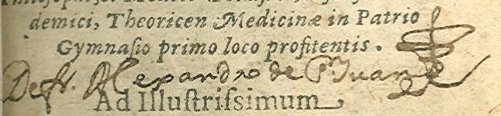 demici, Theoricen Medicinæ in Patrio
Gymnaſio primo loco profitentis.
De fr. Alexandro de Sn Juan
Ad Illuſtriſsimum